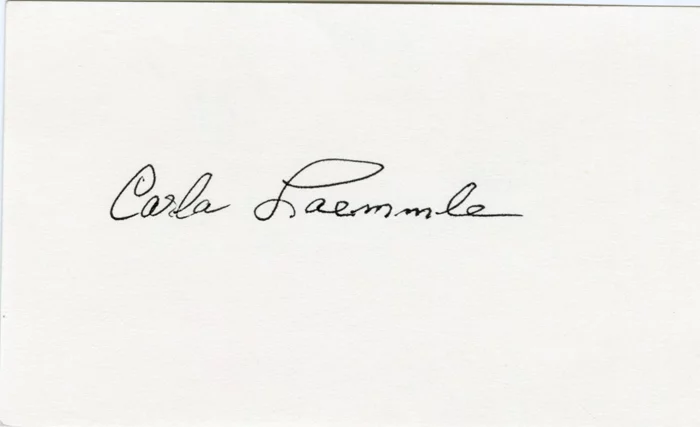 Carla Laemmle